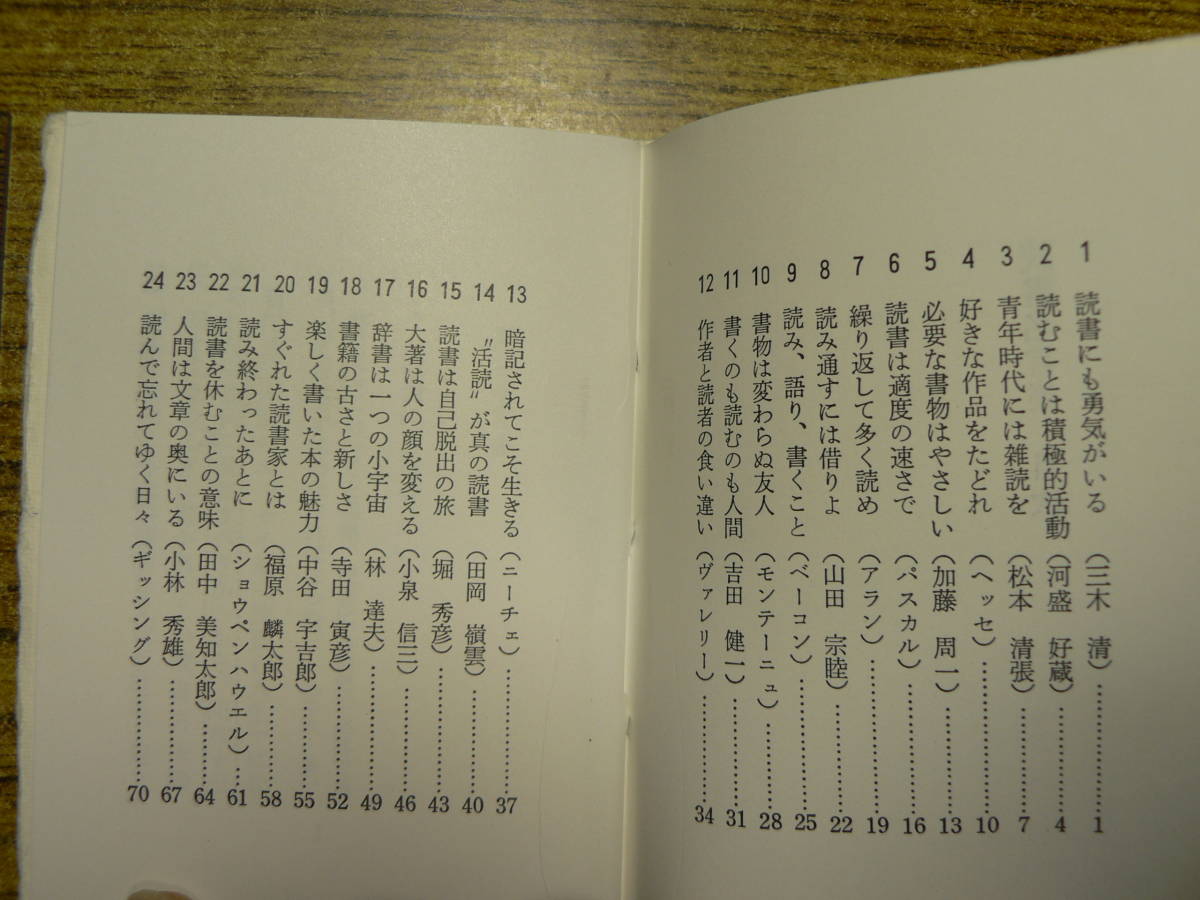 1 読書にも勇気がいる（三木 清）…………1
2 読むことは積極的活動（河盛 好蔵）…………4
3 青年時代には雑読を（松本 清張）…………7
4 好きな作品をたどれ（ヘッセ）…………10
5 必要な書物はやさしい（加藤 周一）…………13
6 読書は適度の速さで（パスカル）…………16
7 繰り返して多く読め（アラン）…………19
8 読み通すには借りよ（山田 宗睦）…………22
9 読み、語り、書くこと（ベーコン）…………25
10 書物は変わらぬ友人（モンテーニュ）…………28
11 書くのも読むのも人間（吉田 健一）…………31
12 作者と読者の食い違い（ヴァレリー）…………34
13 暗記されてこそ生きる（ニーチェ）…………37
14 〝活読〟が真の読書（田岡 嶺雲）…………40
15 読書は自己脱出の旅（堀 秀彦）…………43
16 大著は人の顔を変える（小泉 信三）…………46
17 辞書は一つの小宇宙（林 達夫）…………49
18 書籍の古さと新しさ（寺田 寅彦）…………52
19 楽しく書いた本の魅力（中谷 宇吉郎）…………55
20 すぐれた読書家とは（福原 麟太郎）…………58
21 読み終わったあとに（ショウペンハウエル）…………61
22 読書を休むことの意味（田中 美知太郎）…………64
23 人間は文章の奥にいる（小林 秀雄）…………67
24 読んで忘れてゆく日々（ギッシング）…………70